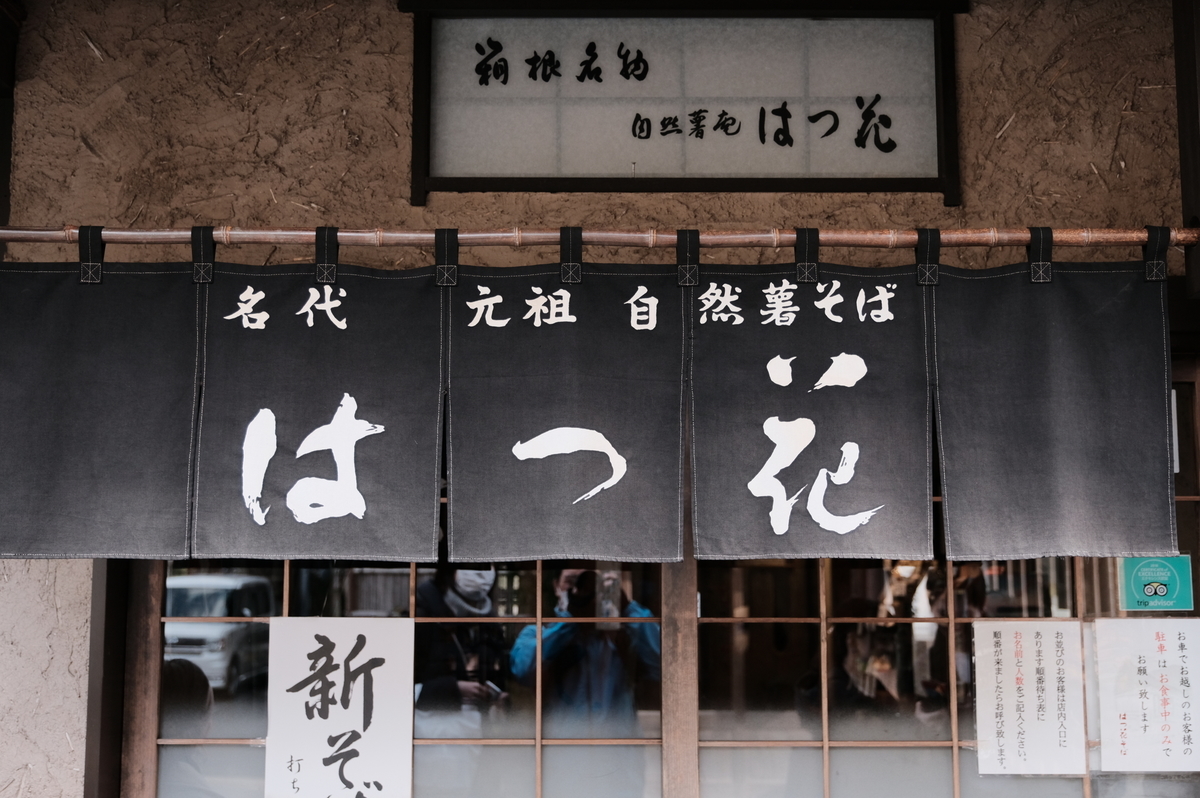 箱根名物
自然薯庵 はつ花
名代 元祖 自然薯そば
はつ花
新そば
打ち
お並びのお客様は店内入口に
あります順番待ち表に
お名前と人数をご記入ください。
順番が来ましたらお呼び致します。
お車でお越しのお客様の
駐車はお食事中のみで
お願い致します
はつ花そば
tripadvisor